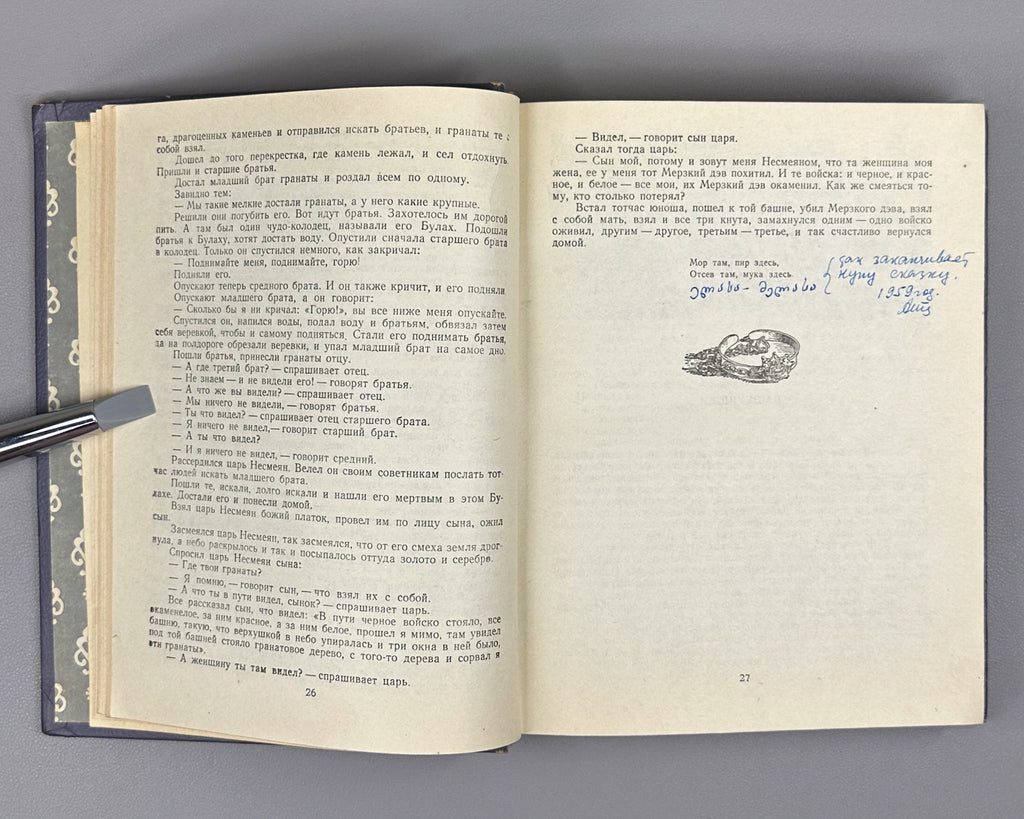 га, драгоценных каменьев и отправился искать братьев, и гранаты те с
собой взял.
Дошел до того перекрестка, где камень лежал, и сел отдохнуть.
Пришли и старшие братья.
Достал младший брат гранаты и роздал всем по одному.
Завидно тем:
— Мы такие мелкие достали гранаты, а у него какие крупные.
Решили они погубить его. Вот идут братья. Захотелось им дорогой
пить. А там был один чудо-колодец, называли его Булах. Подошли
братья к Булаху, хотят достать воду. Опустили сначала старшего брата
в колодец. Только он спустился немного, как закричал:
— Поднимайте меня, поднимайте, горю!
Подняли его.
Опускают теперь среднего брата. И он также кричит, и его подняли.
Опускают младшего брата, а он говорит:
— Сколько бы я ни кричал: «Горю!», вы все ниже меня опускайте.
Спустился он, напился воды, подал воду и братьям, обвязал затем
себя веревкой, чтобы и самому подняться. Стали его поднимать братья,
да на полдороге обрезали веревки, и упал младший брат на самое дно.
Пошли братья, принесли гранаты отцу.
— А где третий брат? — спрашивает отец.
— Не знаем — и не видели его! — говорят братья.
— А что же вы видели? — спрашивает отец.
— Мы ничего не видели, — говорят братья.
— Ты что видел? — спрашивает отец старшего брата.
— Я ничего не видел, — говорит старший брат.
— А ты что видел?
— И я ничего не видел, — говорит средний.
Рассердился царь Несмеян. Велел он своим советникам послать тот-
час людей искать младшего брата.
Пошли те, искали, долго искали и нашли его мертвым в этом Бу-
лахе. Достали его и понесли домой.
Взял царь Несмеян божий платок, провел им по лицу сына, ожил
сын.
Засмеялся царь Несмеян, так засмеялся, что от его смеха земля дрог-
нула, а небо раскрылось и так и посыпалось оттуда золото и серебро.
Спросил царь Несмеян сына:
— Где твои гранаты?
— Я помню, — говорит сын, — что взял их с собой.
— А что ты в пути видел, сынок? — спрашивает царь.
Все рассказал сын, что видел: «В пути черное войско стояло, все
окаменелое, за ним красное, а за ним белое, прошел я мимо, там увидел
башню, такую, что верхушкой в небо упиралась и три окна в ней было,
под той башней стояло гранатовое дерево, с того-то дерева и сорвал я
эти гранаты».
— А женщину ты там видел? — спрашивает царь.
26
— Видел, — говорит сын царя.
Сказал тогда царь:
— Сын мой, потому и зовут меня Несмеяном, что та женщина моя
жена, ее у меня тот Мерзкий дэв похитил. И те войска: и черное, и крас-
ное, и белое — все мои, их Мерзкий дэв окаменил. Как же смеяться то-
му, кто столько потерял?
Встал тотчас юноша, пошел к той башне, убил Мерзкого дэва, взял
с собой мать, взял и все три кнута, замахнулся одним — одно войско
оживил, другим — другое, третьим — третье, и так счастливо вернулся
домой.
Мор там, пир здесь,
Отсев там, мука здесь.
ელასა - მელასა
так заканчивает
сказку.
1959 год.
27